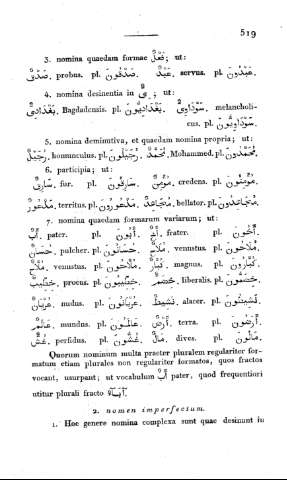 519
3. nomina quaedam formae فَعْلٌ; ut:
صَدْقٌ, probus. pl. صَدْقُونَ. عَبْدٌ, servus. pl. عَبْدُونَ.
4. nomina desinentia in ـِىٌّ; ut:
بَغْدَادِىٌّ, Bagdadensis. pl. بَغْدَادِيُّونَ. سَوْدَاوِىٌّ, melancholi-
cus. pl. سَوْدَاوِيُّونَ.
5. nomina deminutiva, et quaedam nomina propria; ut:
رُجَيْلٌ, homunculus. pl. رُجَيْلُونَ. مُحَمَّدٌ, Mohammed. pl. مُحَمَّدُونَ.
6. participia; ut:
سَارِقٌ, fur. pl. سَارِقُونَ. مُؤْمِنٌ, credens. pl. مُؤْمِنُونَ.
مَذْعُورٌ, territus. pl. مَذْعُورُونَ. مُتَجَاعِدٌ, bellator. pl. مُتَجَاعِدُونَ.
7. nomina quaedam formarum variarum; ut:
أَبٌ, pater. pl. أَبُونَ. أَخٌ, frater. pl. أَخُونَ.
حُسَّانٌ, pulcher. pl. حُسَّانُونَ. مُلَاحٌ, venustus. pl. مُلَاحُونَ.
مُلَّاحٌ, venustus. pl. مُلَّاحُونَ. كُبَّارٌ, magnus. pl. كُبَّارُونَ.
خِطِّيبٌ, procus. pl. خِطِّيبُونَ. خِضَمٌّ, liberalis. pl. خِضَمُّونَ.
عُرْيَانٌ, nudus. pl. عُرْيَانُونَ. نَشِيطٌ, alacer. pl. نَشِيطُونَ.
عَالَمٌ, mundus. pl. عَالَمُونَ. أَرْضٌ, terra. pl. أَرْضُونَ.
غُشٌّ, perfidus. pl. غُشُّونَ. مَالٌ, dives. pl. مَالُونَ.
Quorum nominum multa praeter pluralem regulariter for-
matum etiam plurales non regulariter formatos, quos fractos
vocant, usurpant; ut vocabulum أَبٌ pater, quod frequentiori
utitur plurali fracto آبَآءٌ.
2. nomen imperfectum.
1. Hoc genere nomina complexa sunt quae desinunt in